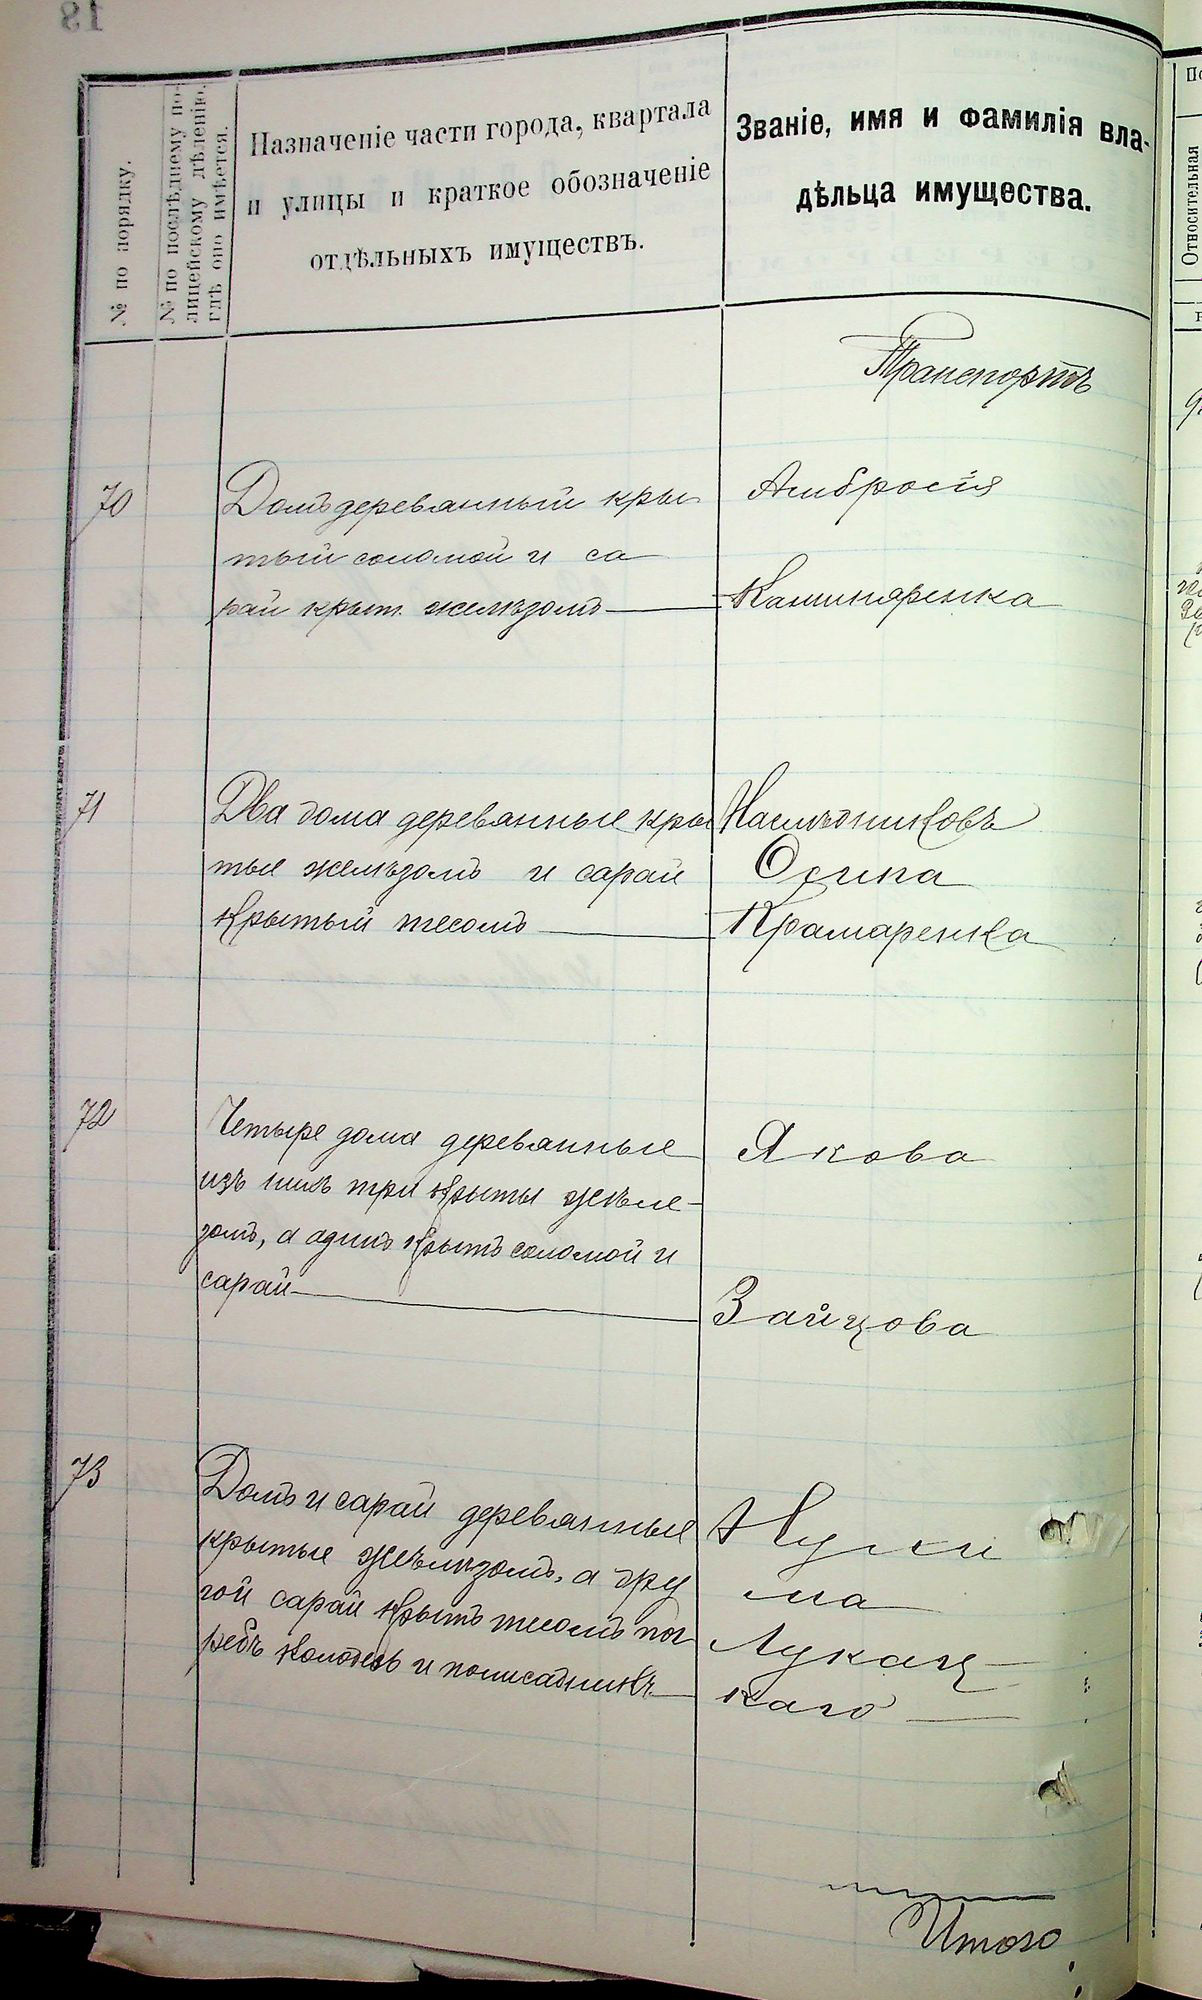 18
№ по порядку.
№ по послѣднему по-
лицейскому дѣленію,
гдѣ оно имѣется.
Назначеніе части города, квартала
и улицы и краткое обозначеніе
отдѣльныхъ имуществъ.
Званіе, имя и фамилія вла-
дѣльца имущества.
Относительная
Транспортъ
70
Домъ деревянный кры
тый соломой и са
рай крыт. желѣзомъ
Амбросія
Каминяренка
71
Два дома деревянные кры
тые желѣзомъ и сарай
крытый тесомъ
Наслѣдниковъ
Осипа
Крамаренка
72
Четыре дома деревянные
изъ нихъ три крыты желе-
зомъ, а одинъ крытъ соломой и
сарай
Якова
Зайцова
73
Домъ и сарай деревянные
крытые желѣзомъ, а дру
гой сарай крытъ тесомъ пог
ребъ колодезь и полисадникъ
Нухи
ма
Лукац
каго
Итого